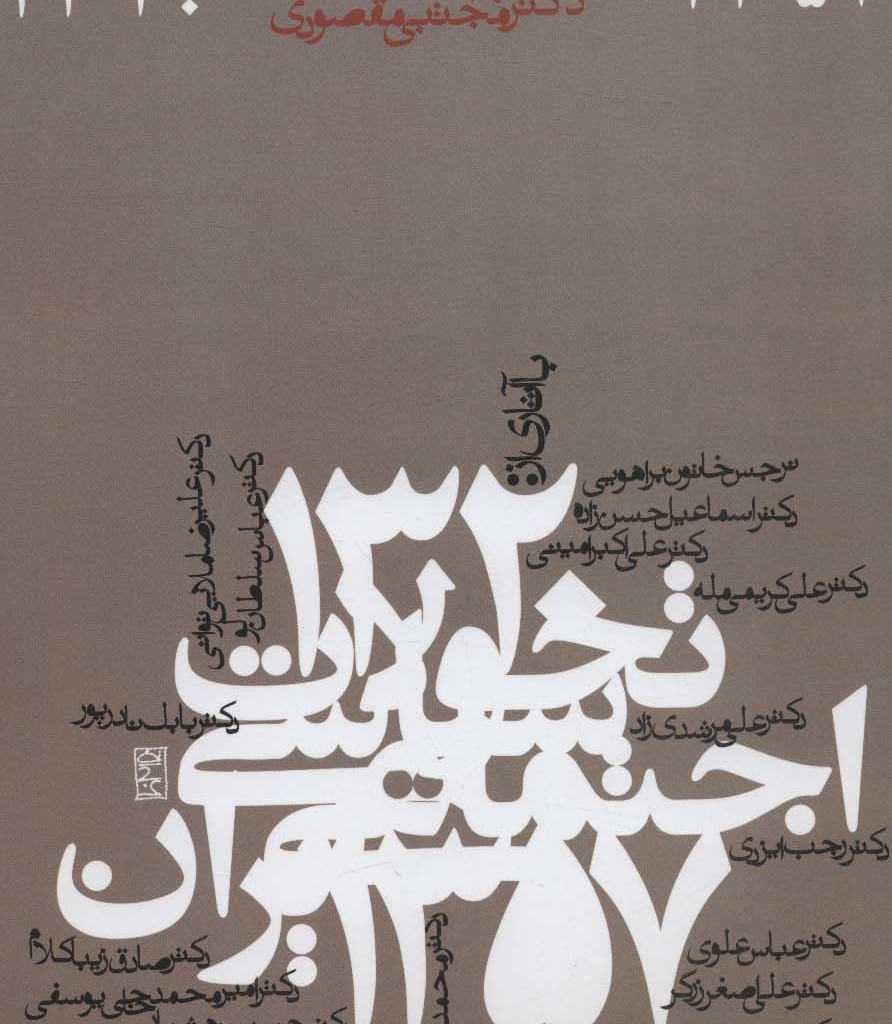 دکتر مجتبی مقصودی
با آثاری از:
نرجس خاتون براهویی
دکتر اسماعیل حسن زاده
دکتر علی اکبر امینی
دکتر علی کریمی مله
دکتر علیرضا ملایی توانی
دکتر عباس سلطان
۱۳۲۰
تحولات
سیاسی
اجتماعی
ایران
۱۳۵۷
دکتر بابک نادرپور
دکتر علی مرشدی زاد
دکتر رجب ایزدی
دکتر عباس علوی
دکتر صادق زیباکلام
دکتر علی اصغر زرگر
دکتر امیرمحمد حاجی یوسفی
دکتر محمد